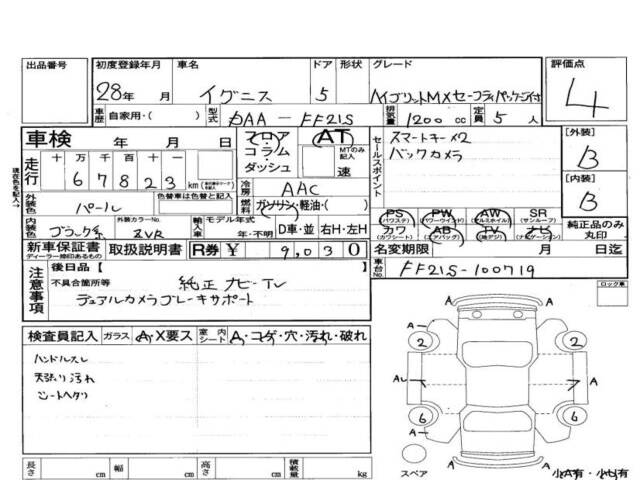 出品番号 初度登録年月 車名 ドア 形状 グレード 評価点
28年 月 イグニス 5 ハイブリットMXセーフティパッケージ付 4
車歴 自家用・( ) 型式 DAA-FF21S 排気量 1200 cc 定員 5 人
車検 年 月 日 フロア コラム・ダッシュ AT MTのみ記入 速
走行 十 万 千 百 十 一
6 7 8 2 3 km
現在色を記入→
冷房 AAC
燃料 ガソリン・軽油・( )
外装色 パール 色替車は色替と記入
内装色 ブラック系 外装カラーNo. ZVR 輸入車 モデル年式 年・不明 D車・並 右H・左H
セールスポイント
スマートキー×2
バックカメラ
[外装] B
[内装] B
PS (パワステ) PW (パワーウインド) AW (アルミホイル) SR (サンルーフ) 純正品のみ丸印
カワ (カワシート) AB (エアバッグ) TV (地デジ) ナビ (ナビゲーション)
新車保証書 ディーラー捺印あるもの 取扱説明書 R券 ¥ 9,030
名変期限 月 日迄
車台No. FF21S-100719
注意事項
後日品[ ]
不具合箇所等 純正ナビ・TV
デュアルカメラブレーキサポート
ロック車
検査員記入 ガラス A・X要ス 室内シート A・コゲ・穴・汚れ・破れ
ハンドルスレ
天張り汚れ
シートヘタリ
A A A
2 2
A A
6 6
A A
スペア 小A有・小U有
長さ cm 幅 cm 高さ cm 積載量 kg